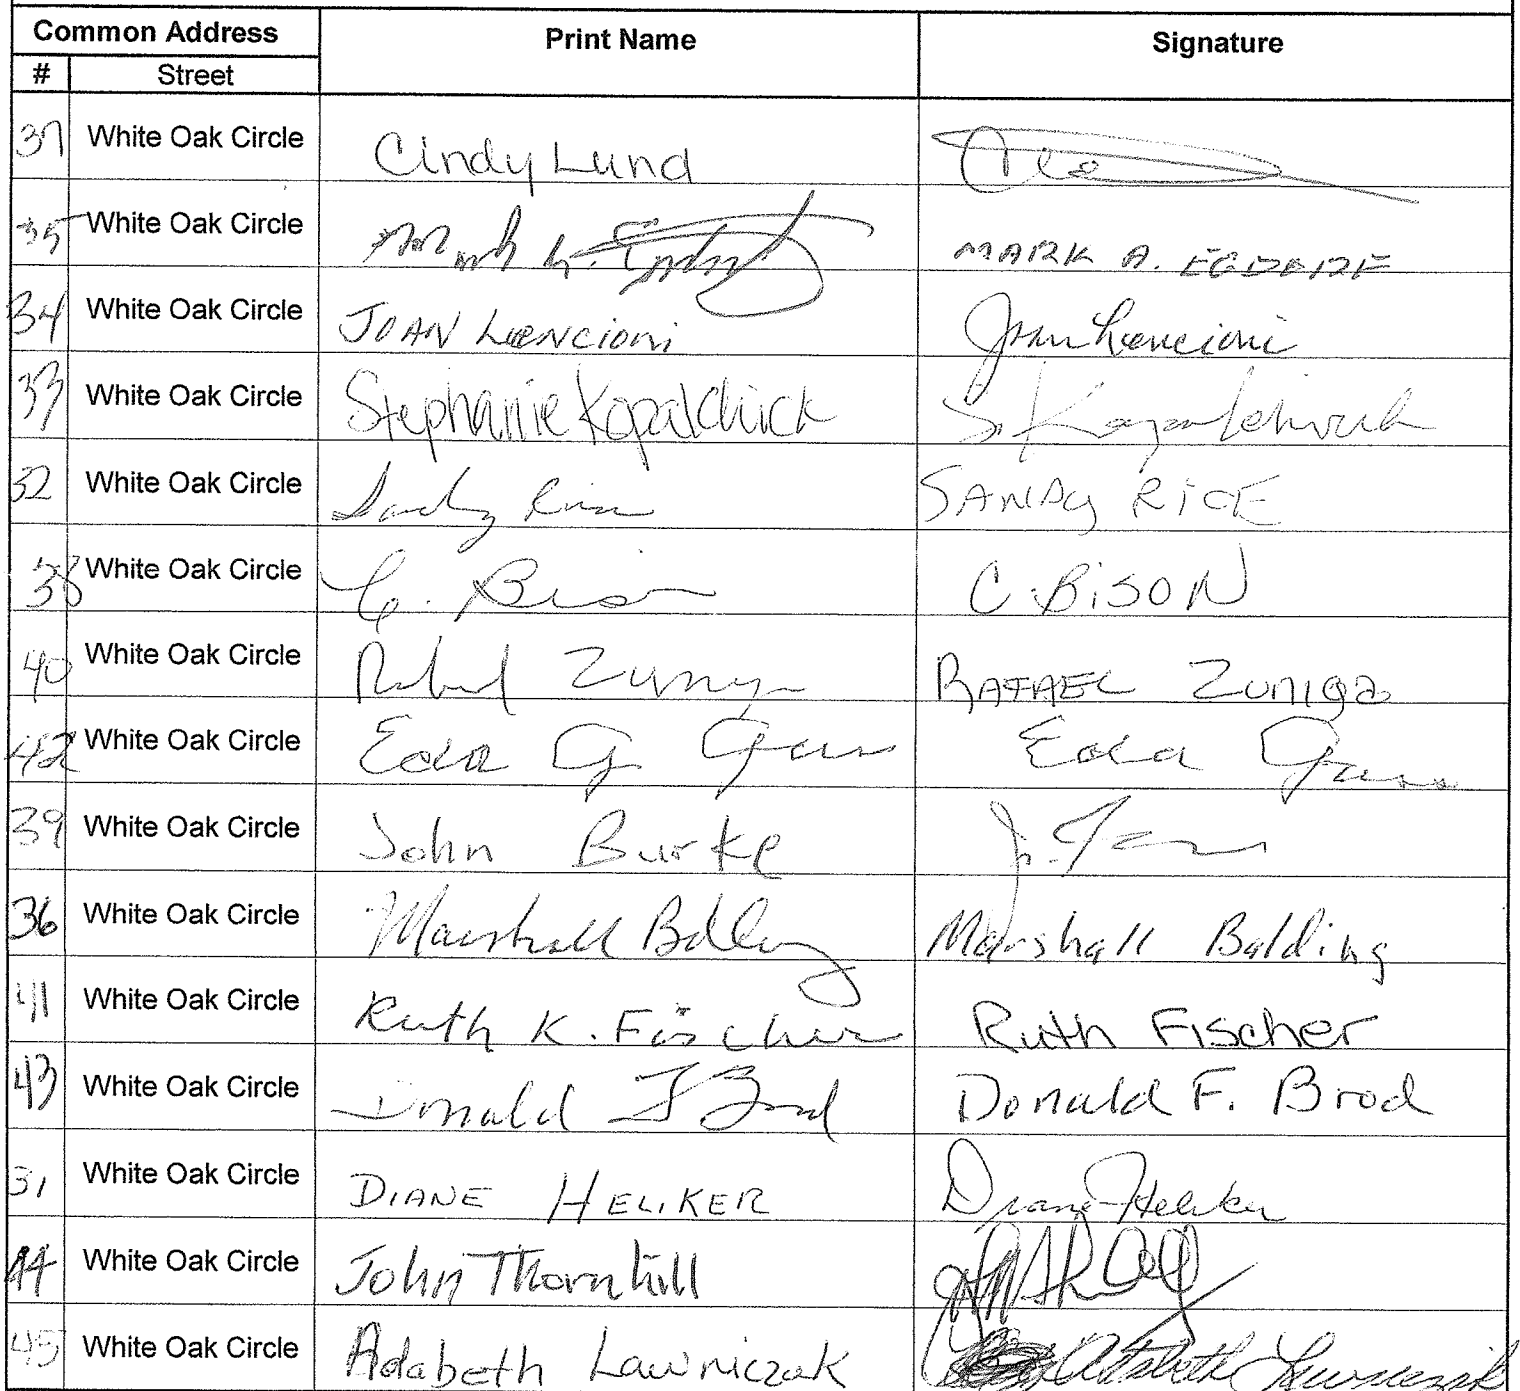 Common Address Print Name Signature
# Street
37 White Oak Circle Cindy Lund
35 White Oak Circle MARK A.
34 White Oak Circle JOAN Lencioni Joan Lencioni
33 White Oak Circle Stephanie Kopalchick S. Kopalchick
32 White Oak Circle Sandy Rice SANDY RICE
38 White Oak Circle C. Bison C. BISON
40 White Oak Circle Rafael Zuniga RAFAEL Zuniga
42 White Oak Circle Eda G Eda
39 White Oak Circle John Burke J.
36 White Oak Circle Marshall Balding Marshall Balding
41 White Oak Circle Ruth K. Fischer Ruth Fischer
43 White Oak Circle Donald F Brod Donald F. Brod
31 White Oak Circle DIANE HELIKER Diane Heliker
44 White Oak Circle John Thornhill
45 White Oak Circle Adabeth Lawniczak Adabeth Lawniczak